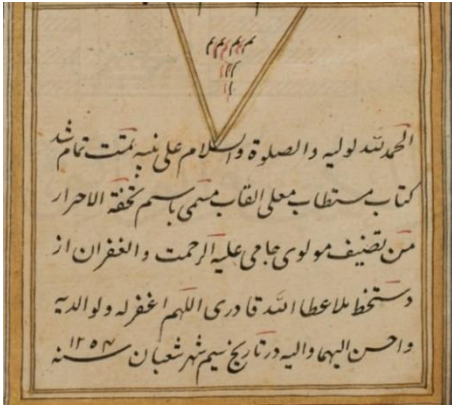 م م م م م
الحمد لله لوليه والصلوة والسلام علی نبیه تمت تمام شد
کتاب مستطاب معلی القاب مسمی باسم تحفة الاحرار
من تصنیف مولوی جامی علیه الرحمت والغفران از
دستخط ملا عطا الله قادری اللهم اغفر له ولوالدیه
واحسن الیهما والیه در تاریخ سیم شهر شعبان سنه ۱۲۵۴